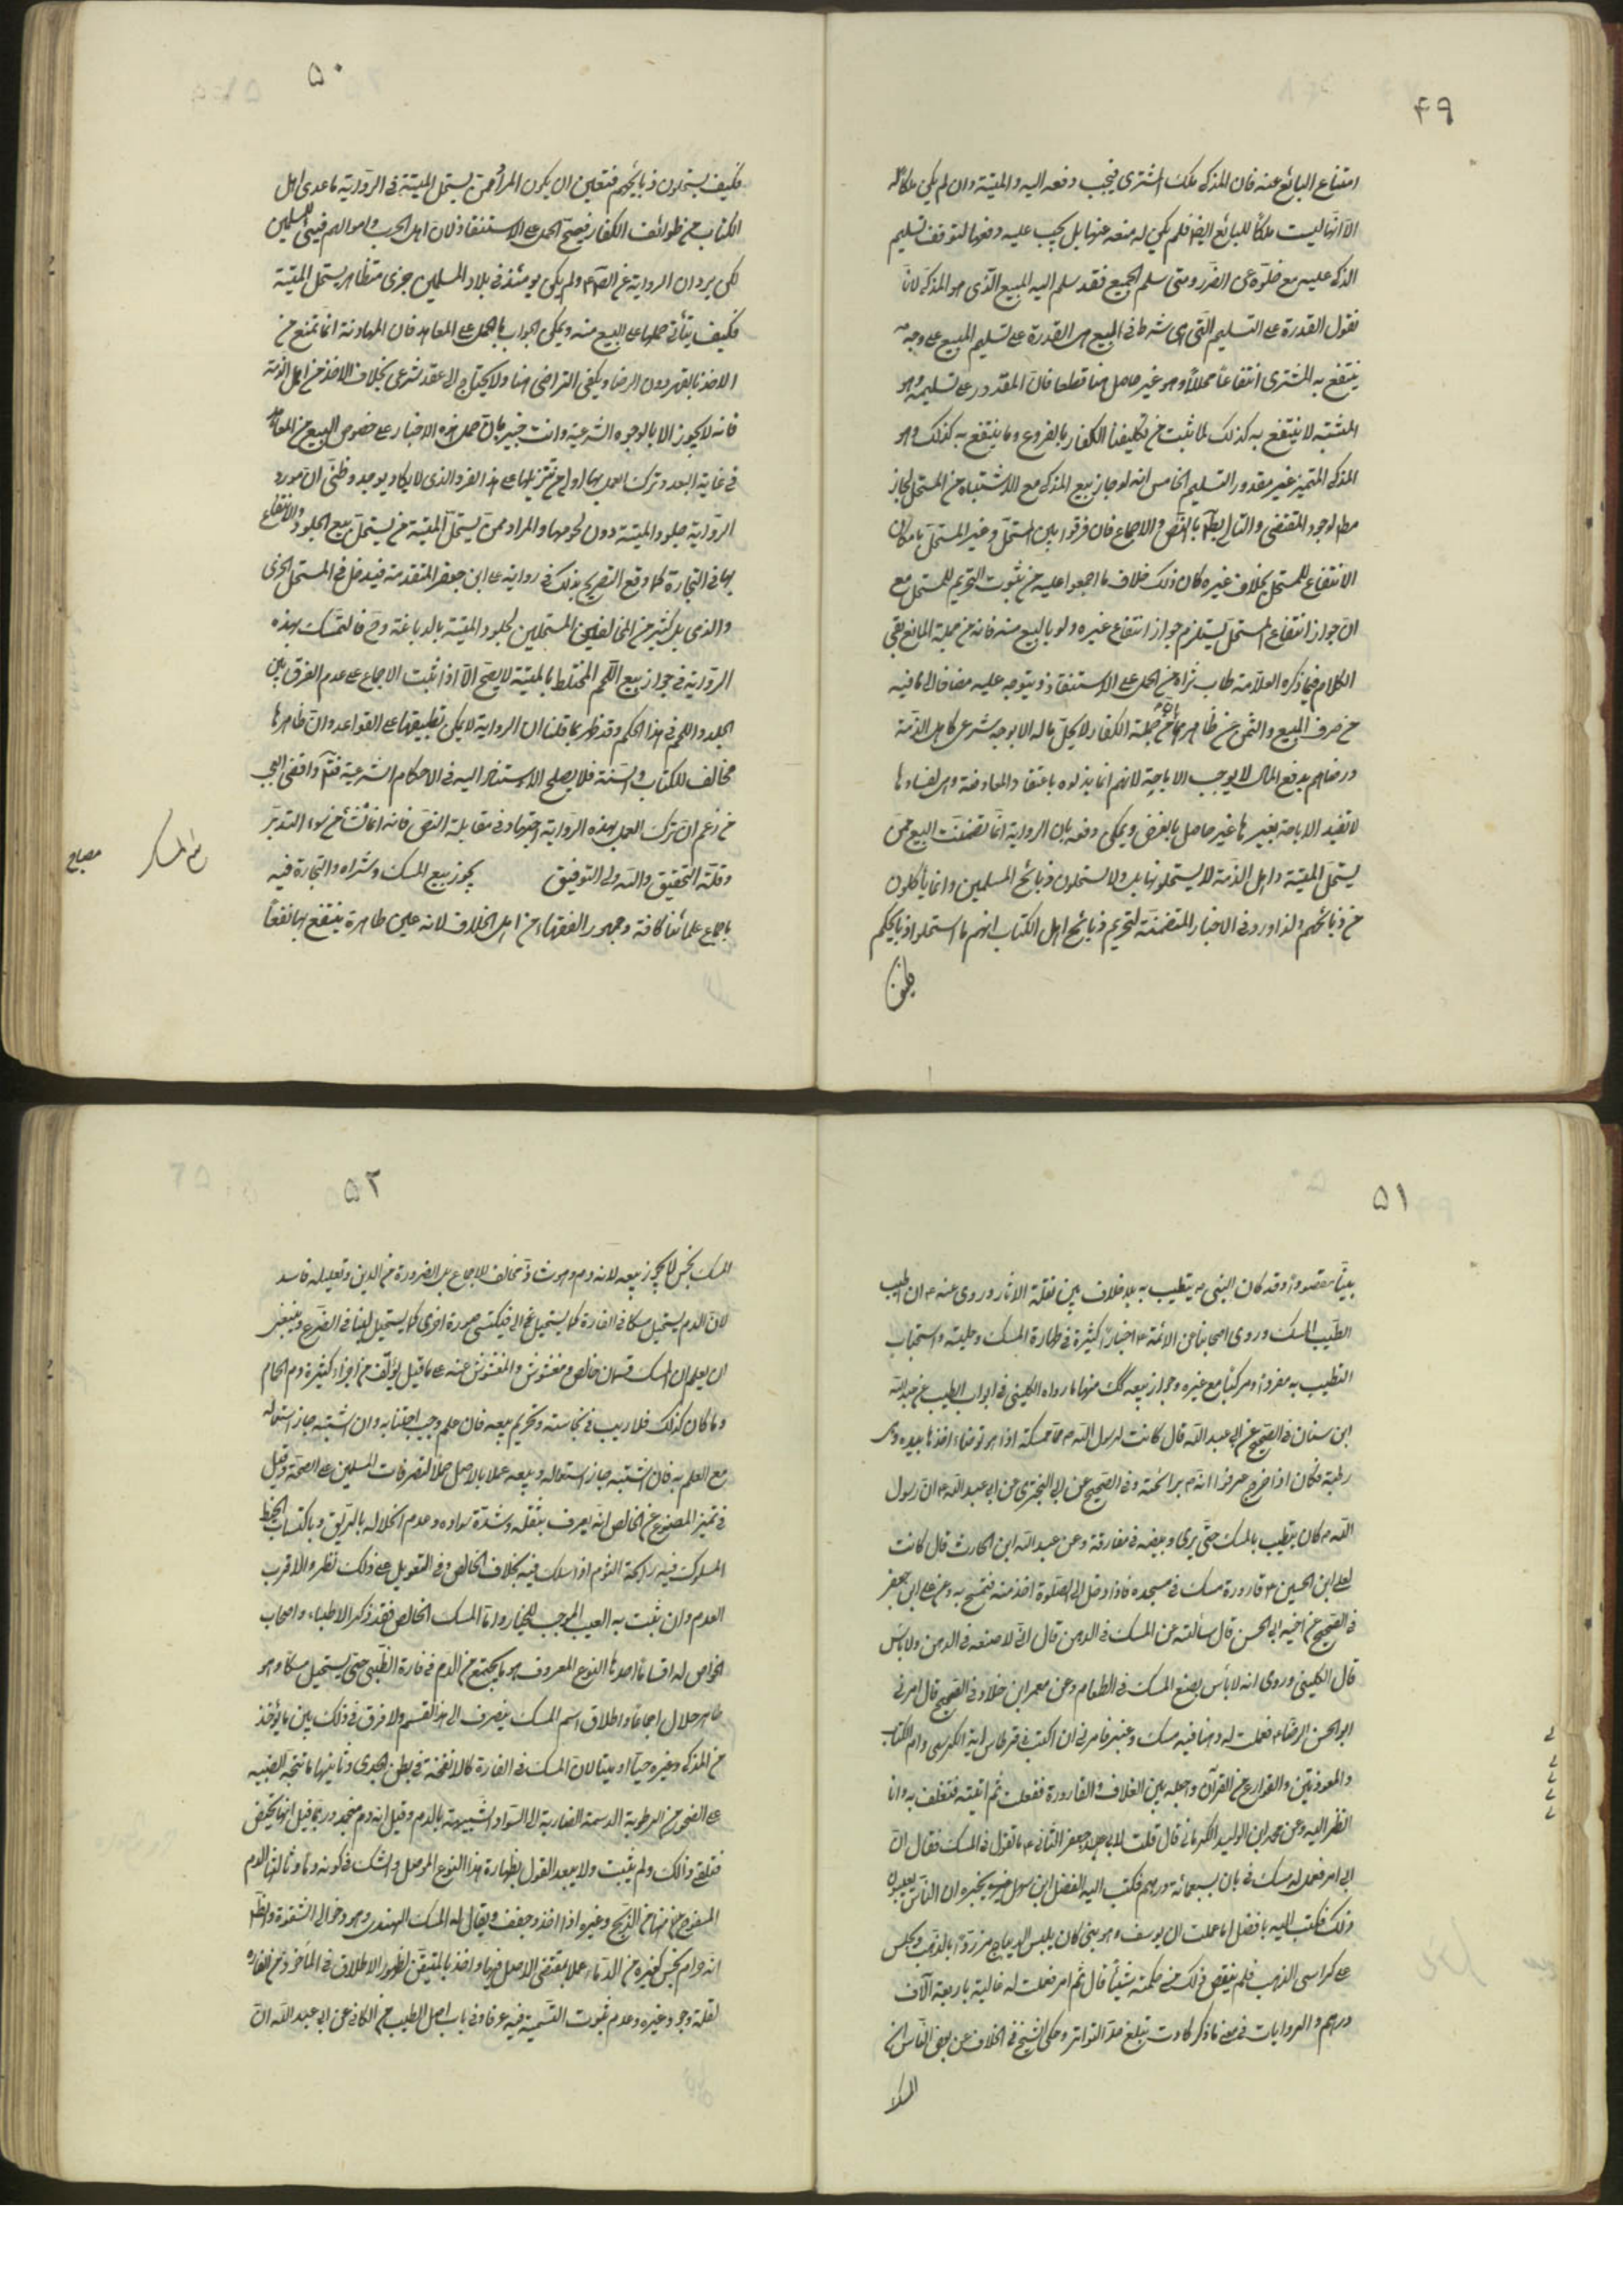 ۴۹
امتناع البائع عنه فان المذكى ملك المشترى فيجب دفعه اليه والميتة وان لم يكن ملكا له
الا انها ليست ملكا للبائع ايضا فلم يكن له منعه عنها بل يجب عليه دفعها لتوقف تسليم
المذكى عليه مع خلوه عن الضرر ومتى سلم الجميع فقد سلم اليه المبيع الذى هو المذكى لانا
نقول القدرة على التسليم التى هى شرط فى المبيع هى القدرة على تسليم المبيع على وجه
ينتفع به المشترى انتفاعا محللا وهو غير حاصل هنا قطعا فان المقدور على تسليمه وهو
المشتبه لا ينتفع به كذلك لما ثبت من تكليف الكفار بالفروع وما ينتفع به كذلك وهو
المذكى المتميز غير مقدور التسليم الخامس انه لو جاز بيع المذكى مع الاشتباه من المستحل لجاز
مطلقا لوجود المقتضى والتالى باطل بالنص والاجماع فان فرقوا بين المستحل وغير المستحل بامكان
الانتفاع للمستحل بخلاف غيره كان ذلك خلاف ما اجمعوا عليه من ثبوت التحريم للمستحل مع
ان جواز انتفاع المستحل يستلزم جواز انتفاع غيره ولو بالبيع منه فانه من جملة المنافع بقى
الكلام فيما ذكره العلامة طاب ثراه من الحمل على الاستنقاذ ويتوجه عليه مضافا الى ما فيه
من صرف البيع والثمن عن ظاهرهما ان من جملة الكفار لا يحل ماله الا بوجه شرعى كاهل الذمة
ورضاهم بدفع المال لا يوجب الاباحة لانهم انما بذلوه باعتقاد المعاوضة وهى لفسادها
لا تفيد الاباحة بغيرها غير حاصل بالفرض ويمكن دفعه بان الرواية انما تضمنت البيع ممن
يستحل الميتة واهل الذمة لا يستحلونها بل ولا يستحلون ذبائح المسلمين وانما ياكلون
من ذبائحهم ولذا ورد فى الاخبار المتضمنة لتحريم ذبائح اهل الكتاب انهم ما استحلوا ذبايحكم
فكيف
۵۰
فكيف يستحلون ذبايحهم فتعين ان يكون المراد ممن يستحل الميتة فى الرواية ما عدى اهل
الكتاب من طوائف الكفار فيصح الحمل على الاستنقاذ لان اهل الحرب واموالهم فيئ للمسلمين
لكن يرد ان الرواية عن الصادق ع ولم يكن يومئذ فى بلاد المسلمين حربى متظاهر يستحل الميتة
فكيف يتأتى حملها على البيع منه ويمكن الجواب بالحمل على المعاهد فان المهادنة انما تمنع من
الاخذ بالقهر دون الرضا ويكفى التراضى هنا ولا يحتاج الى عقد شرعى بخلاف الاخذ من اهل الذمة
فانه لا يجوز الا بالوجوه الشرعية وانت خبير بان حمل هذه الاخبار على خصوص البيع من المعاهد
فى غاية البعد وترك العمل بها اولى من تنزيلها على هذا الفرد الذى لا يكاد يوجد وظنى ان مورد
الرواية جلود الميتة دون لحومها والمراد ممن يستحل الميتة من يستحل بيع الجلود والانتفاع
بها فى التجارة كما وقع التصريح بذلك فى رواية على ابن جعفر المتقدمة فيدخل فى المستحل الحربى
والذمى بل كثير من المخالفين المستحلين لجلود الميتة بالدباغة وح فالتمسك بهذه
الرواية فى جواز بيع اللحم المختلط بالميتة لا يصح الا اذا ثبت الاجماع على عدم الفرق بين
الجلد واللحم فى هذا الحكم وقد ظهر بما قلنا ان الرواية لا يمكن تطبيقها على القواعد وان ظاهرها
مخالف للكتاب والسنة فلا يصلح الاستناد اليه فى الاحكام الشرعية واقضى العجب
من زعم ان ترك العمل بهذه الرواية اجتهاد فى مقابلة النص فانه انما نشأ من سوء التدبر
وقلة التحقيق والله ولى التوفيق يجوز بيع المسك وشراه والتجارة فيه
باجماع علمائنا كافة وجمهور الفقهاء من اهل الخلاف لانه عين طاهرة ينتفع بها نفعا
مصباح
۵۱
بينا مقصودا وقد كان النبى ص يتطيب به بلا خلاف بين نقلة الاثار وروى عنه ص ان اطيب
الطيب المسك وروى اصحابنا عن الائمة ع اخبارا كثيرة فى طهارة المسك وحليته واستحباب
التطيب به مفردا ومركبا مع غيره وجواز بيعه كك منها ما رواه الكلينى فى ابواب الطيب عن عبد الله
ابن سنان فى الصحيح عن ابى عبد الله قال كانت لرسول الله ص ممسكة اذا هو توضاء اخذها بيده وهى
رطبة فكان اذا خرج عرفوا انه ص برائحته وفى الصحيح عن ابى البخترى عن ابى عبد الله ع ان رسول
الله ص كان يتطيب بالمسك حتى يرى وبيضه فى مفارقه وعن عبد الله ابن الحارث قال كانت
لعلى ابن الحسين ع قارورة مسك فى مسجده فاذا دخل الى الصلوة اخذ منه فتمسح به وعن على ابن جعفر
فى الصحيح عن اخيه ابى الحسن قال سألته عن المسك فى الدهن قال انى لاصنعه فى الدهن ولا باس
قال الكلينى وروى انه لا بأس بصنع المسك فى الطعام وعن معمر ابن خلاد فى الصحيح قال امرنى
ابو الحسن الرضا ع فعملت له دهنا فيه مسك وعنبر فامرنى ان اكتب فى قرطاس اية الكرسى وام الكتاب
والمعوذتين والقوارع من القرآن واجعله بين الغلاف والقارورة ففعلت ثم اتيته فتغلف به وانا
انظر اليه وعن محمد ابن الوليد الكرمانى قال قلت لابى جعفر الثانى ع ما تقول فى المسك فقال ان
ابى امر فعمل له مسك فى بان بسبعمائة درهم فكتب اليه الفضل ابن سهل يخبره ان الناس يعيبون
ذلك فكتب اليه يا فضل اما علمت ان يوسف وهو نبى كان يلبس الديباج مزررة بالذهب ويجلس
على كراسى الذهب فلم ينقص ذلك من حكمته شيئا قال ثم امر فعملت له غالية باربعة آلاف
درهم والروايات فى معنى ما ذكر كادت تبلغ حد التواتر وحكى الشيخ فى الخلاف عن بعض الناس ان
المسك
۵۲
المسك نجس لا يجوز بيعه لانه دم وهو شاذ مخالف للاجماع بل الضرورة من الدين وتعليله فاسد
لان الدم يستحيل مسكا فى الفارة كما يستحيل منيا فيكتسى صورة اخرى كما يستحيل لبنا فى الضرع وينبغى
ان يعلم ان المسك قسمان خالص ومغشوش والمغشوش منه على ما قيل يؤلف من اجزاء كثيرة ودم الحمام
وما كان كذلك فلا ريب فى نجاسته وتحريم بيعه فان علم وجب اجتنابه وان اشتبه جاز استعماله
مع العلم به فان اشتبه جاز استعماله وبيعه عملا بالاصل حملا لتصرفات المسلمين على الصحة وقيل
فى تميز المصنوع عن الخالص انه يعرف بثقله وشدة سواده وعدم انحلاله بالريق وباكتساب الخيط
المسلوك فيه رائحة الثوم اذا سلك فيه بخلاف الخالص وفى التعويل على ذلك نظر والاقرب
العدم وان ثبت به العيب الموجب للخيار واما المسك الخالص فقد ذكر الاطباء واصحاب
الخواص له اقساما احدها النوع المعروف وهو ما يجتمع من الدم فى فارة الظبى حتى يستحيل مسكا وهو
طاهر حلال اجماعا واطلاق اسم المسك ينصرف الى هذا القسم ولا فرق فى ذلك بين ما يؤخذ
من المذكى وغيره حيا او ميتا لان المسك فى الفارة كالانفحة فى بطن الجدى وثانيها ما تنتجه الظبية
على الصخور من الرطوبة الدسمة الضاربة الى السواد الشبيهة بالدم وقيل انه دم منجمد وربما قيل انها تحيض
فتلقى ذلك ولم يثبت ولا يبعد القول بطهارة هذا النوع للاصل والشك فى كونه دما وثالثها الدم
المسفوح منها من الذبح وغيره اذا اخذ وجفف ويقال له المسك الهندى وهو دخوالى الشقرة والظاهر
انه حرام نجس كغيره من الدماء عملا بمقتضى الاصل فيها واخذا بالمتيقن لظهور الاطلاق فى الماخوذ من الفارة
لقلة وجود غيره وعدم ثبوت التسمية فيه عرفا وفى باب اصل الطيب من الكافى عن ابى عبد الله ان